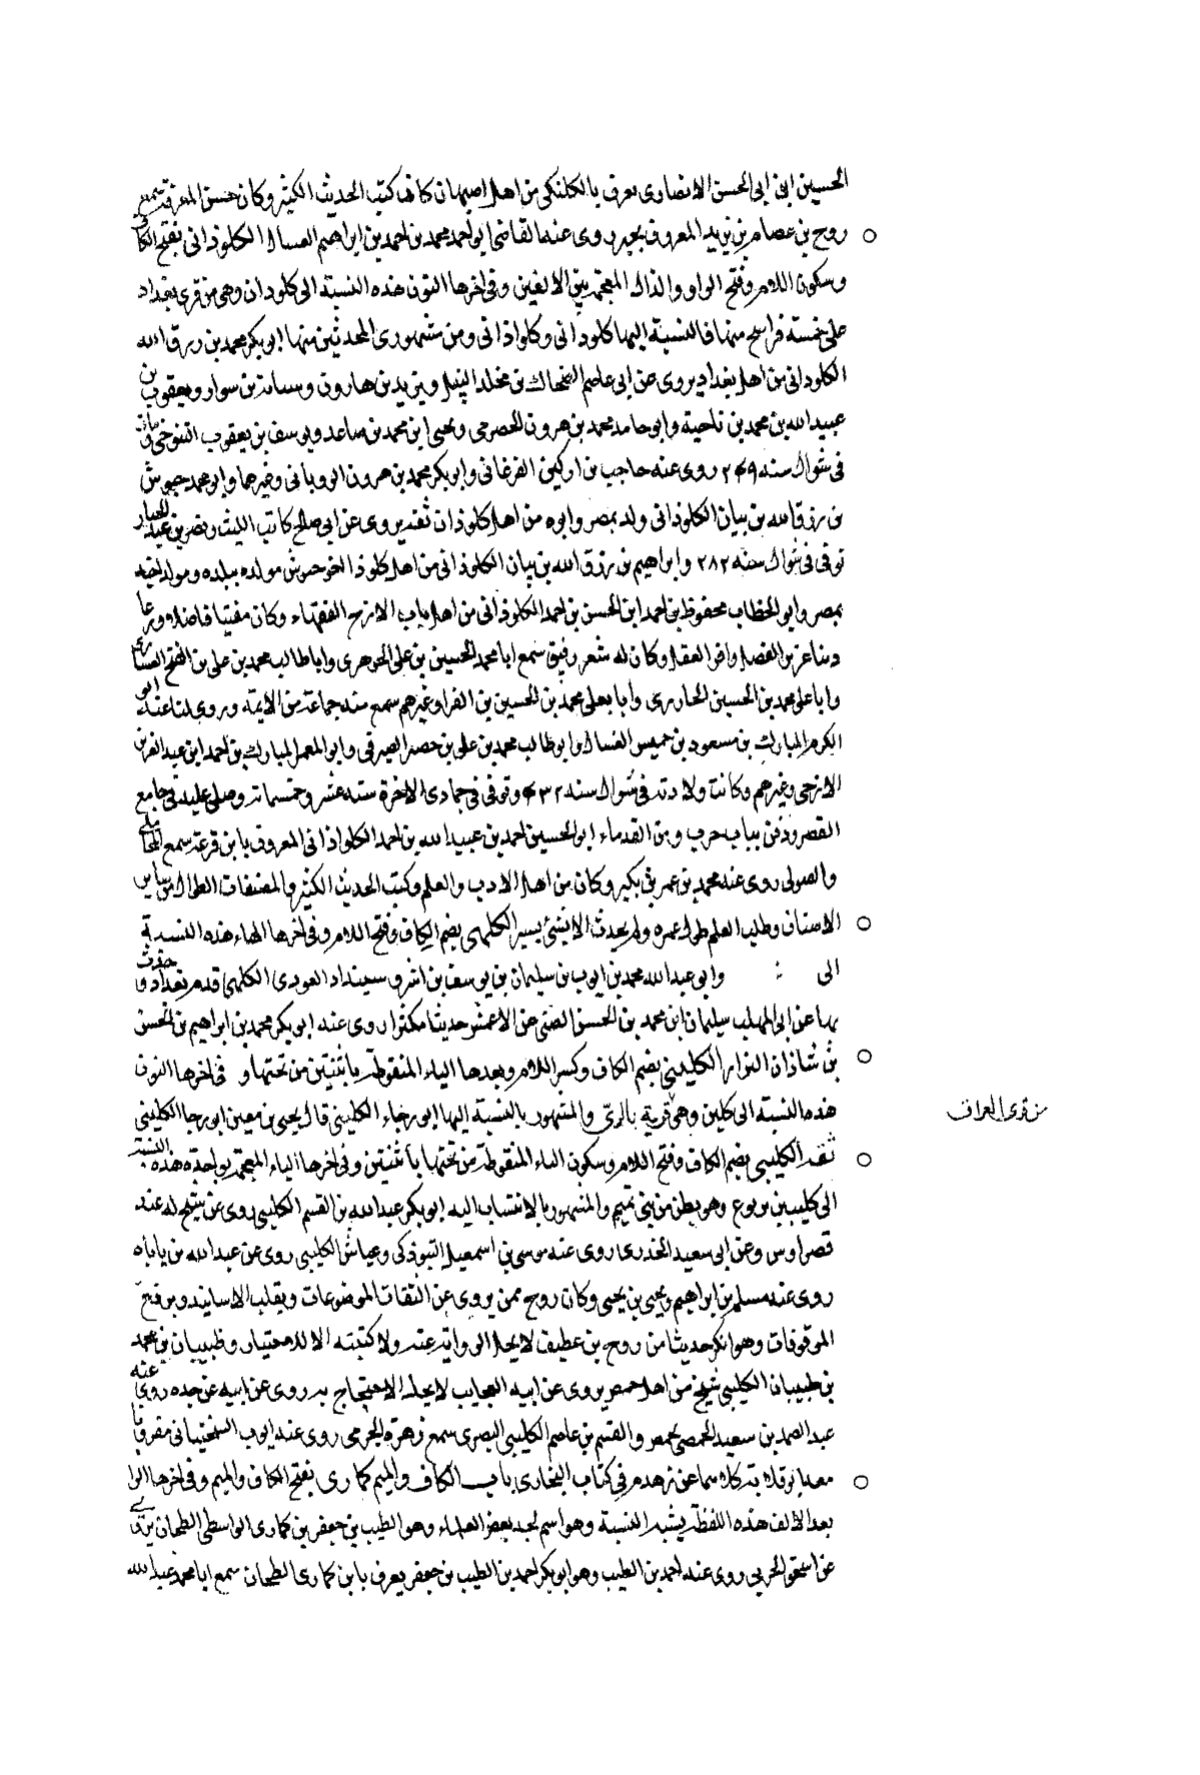 الحسين ابن ابى الحسن الانصارى يعرف بالكلنكى من اهل اصبهان كان كتب الحديث الكثير وكان حسن المعرفة سمع
روح بن عصام بن يزيد المعروف بجبر روى عنه القاضى ابو احمد محمد بن احمد بن ابراهيم العسال الكلوذانى بفتح الكاف
وسكون اللام وفتح الواو والذال المعجمة بين الالفين وفى اخرها النون هذه النسبة الى كلوذان وهى من قرى بغداد
على خمسة فراسخ منها فالنسبة اليها كلوذانى وكلواذانى ومن مشهورى المحدثين منها ابو بكر محمد بن رزق الله
الكلوذانى من اهل بغداد يروى عن ابى عاصم الضحاك بن مخلد النبيل ويزيد بن هارون وسبابة بن سوار ويعقوب بن
عبيد الله بن محمد بن ناجية وابو حامد محمد بن هرون الحضرمى ويحيى ابن محمد بن صاعد ويوسف بن يعقوب التنوخى مات
فى شوال سنه ٢٤٩ روى عنه حاجب بن اركين الفرغانى وابو بكر محمد بن هرون الرويانى وغيرها وابو محمد حبوش
بن رزق الله بن بيان الكلوذانى ولد بمصر وابوه من اهل كلوذان ثقة يروى عن ابى صالح كاتب الليث ونصر بن عبد الجبار
توفى فى شوال سنه ٢٨٢ وابراهيم بن رزق الله بن بيان الكلوذانى من اهل كلوذا اخو حبوش مولده ببلده ومولد اخيه
بمصر وابو الخطاب محفوظ بن احمد ابن الحسن بن احمد الكلوذانى من اهل باب الازج الفقهاء وكان مفتيا فاضلا ورعا
دينا غزير الفضل وافر العقل وكان له شعر رقيق سمع ابا محمد الحسين بن على الجوهرى وابا طالب محمد بن على بن الفتح العشارى
وابا على محمد بن الحسين الجازرى وابا يعلى محمد بن الحسين بن الفرا وغيرهم سمع منه جماعة من الايمة وروى لنا عنه ابو
الكرم المبارك بن مسعود بن خميس الغسال وابو طالب محمد بن على بن خصر الصيرفى وابو المعمر المبارك بن احمد ابن عبد العزيز
الازجى وغيرهم وكانت ولادته فى شوال سنه ٤٣٢ وتوفى فى جمادى الاخرة سنه عشر وخمسماتة وصلى عليه فى جامع
القصر ودفن بباب حرب ومن القدماء ابو الحسين احمد بن عبيد الله بن احمد الكلواذانى المعروف بابن قرعة سمع المحاملى
والصولى روى عنه محمد بن عمر بن بكير وكان من اهل الادب والعلم وكتب الحديث الكثير والمصنفات الطوال من ساير
الاصناف وطلب العلم طول عمره ولم يحدث الا بشئ يسير الكلهى بضم الكاف وفتح اللام وفى اخرها الهاء هذه النسبة
الى : وابو عبد الله محمد بن ايوب بن سليمان بن يوسف بن اشروسينداد العودى الكلهى قدم بغداد وحدث
بها عن ابى المهلب سليمان ابن محمد بن الحسن الصنى عن الاعمش حديثا مكثرا روى عنه ابو بكر محمد بن ابراهيم بن الحسن
بن شاذان البزار الكلينى بضم الكاف وكسر اللام وبعدها الياء المنقوطة باثنتين من تحتها و فى اخرها النون
هذه النسبة الى كلين وهى قرية بالرىّ والمشهور بالنسبة اليها ابو رجاء الكلينى قال يحيى بن معين ابو رجا الكلينى
من قرى العراق
ثقة الكليبى بضم الكاف وفتح اللام وسكون الياء المنقوطة من تحتها باثنتين وفى اخرها الباء المعجمة بواحدة هذه النسبة
الى كليب بن يربوع وهو بطن من بنى تميم والمشهور بالانتساب اليه ابو بكر عبد الله بن القسم الكليبى روى عن شيخ له عند
قصر اوس وعن ابى سعيد الخدرى روى عنه موسى بن اسمعيل التبوذكى وعياش الكليبى روى عن عبد الله بن باباه
روى عنه مسلم بن ابراهيم ويحيى بن يحيى وكان روح ممن يروى عن الثقات الموضوعات ويقلب الاسانيد ويرفع
الموقوفات وهو انكر حديثا من روح بن غطيف لا يحل الرواية عنه ولا كتبته الا للاختبار وظبيان بن محمد
بن ظبيان الكليبى شيخ من اهل حمص يروى عن ابيه العجايب لا يحل الاحتجاج به روى عن ابيه عن جده روى عنه
عبد الصمد بن سعيد الحمصى بحمص والقسم بن عاصم الكليبى البصرى سمع زهرة الجرمى روى عنه ايوب السختيانى مقرونا
معه ابو قلابة كلاهما عن زهدم فى كتاب البخارى باب الكاف والميم كمارى بفتح الكاف والميم وفى اخرها الرا
بعد الالف هذه اللفظة يشبه النسبة وهو اسم لجد بعض العلماء وهو الطيب بن جعفر بن كمارى الواسطى الطحان يروى
عن اسحق الحربى روى عنه احمد بن الطيب وهو ابو بكر احمد بن الطيب بن جعفر يعرف بابن كمارى الطحان سمع ابا محمد عبد الله